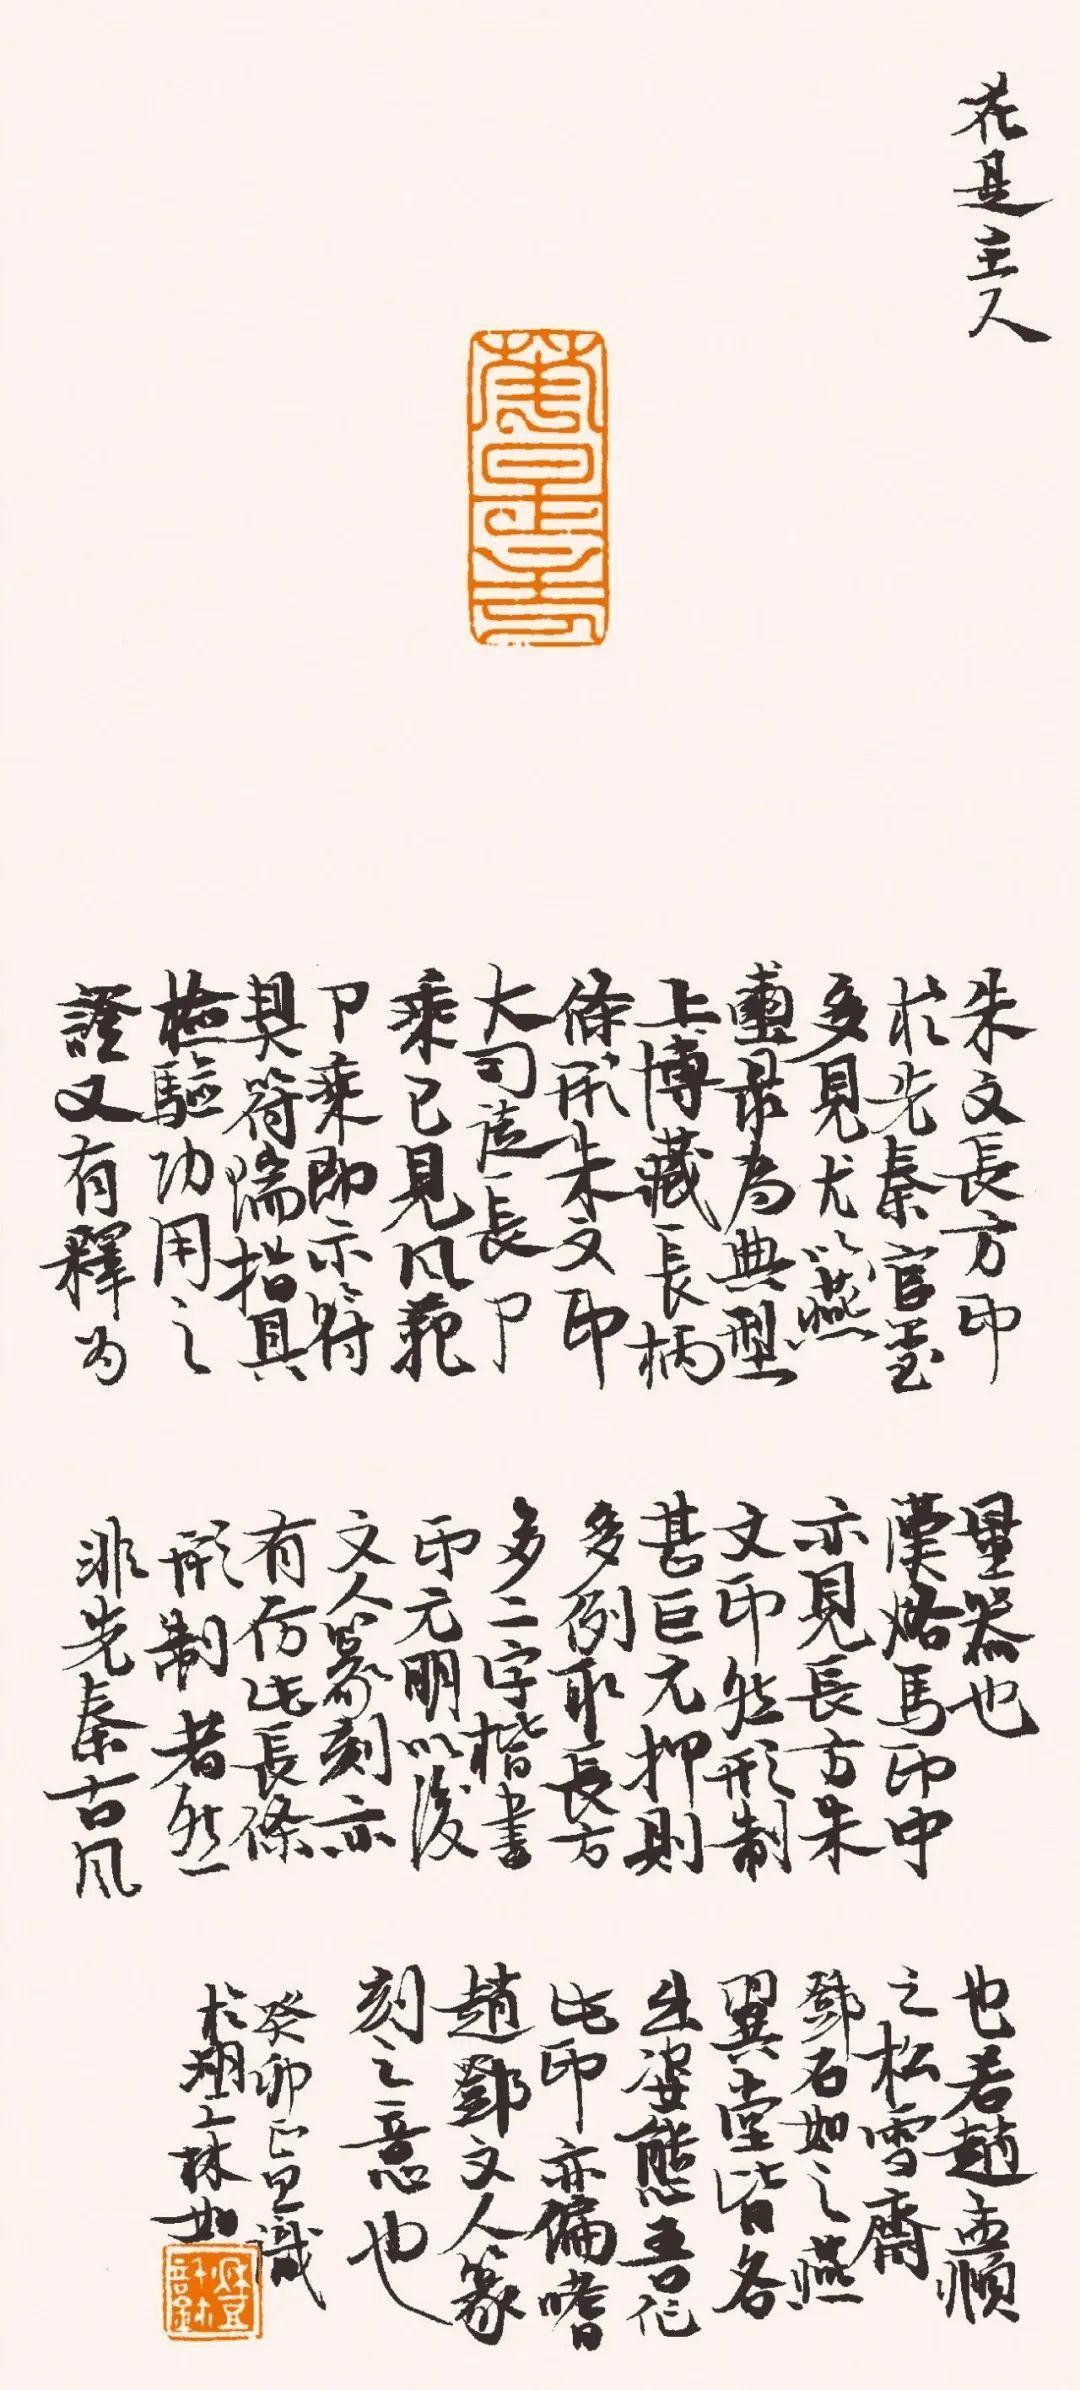 花是主人
朱文長方印
於先秦官璽
多見尤以燕
璽最為典型
上博藏長柄
條形朱文印
大司徒長卩
乘已見風範
卩乘即示符
契符瑞指具
檢驗功用之
證又有釋为
量器也
漢烙馬印中
亦見長方朱
文印然形制
甚巨元押則
多例取長方
多二字楷書
印元明以後
文人篆刻亦
有仿此長條
形制者然
非先秦古风
也若趙孟頫
之松雪齋
鄧石如之燕
翼堂皆各
出姿態吾作
此印亦偏嗜
趙鄧文人篆
刻之意也
癸卯正月識
於湖上林如